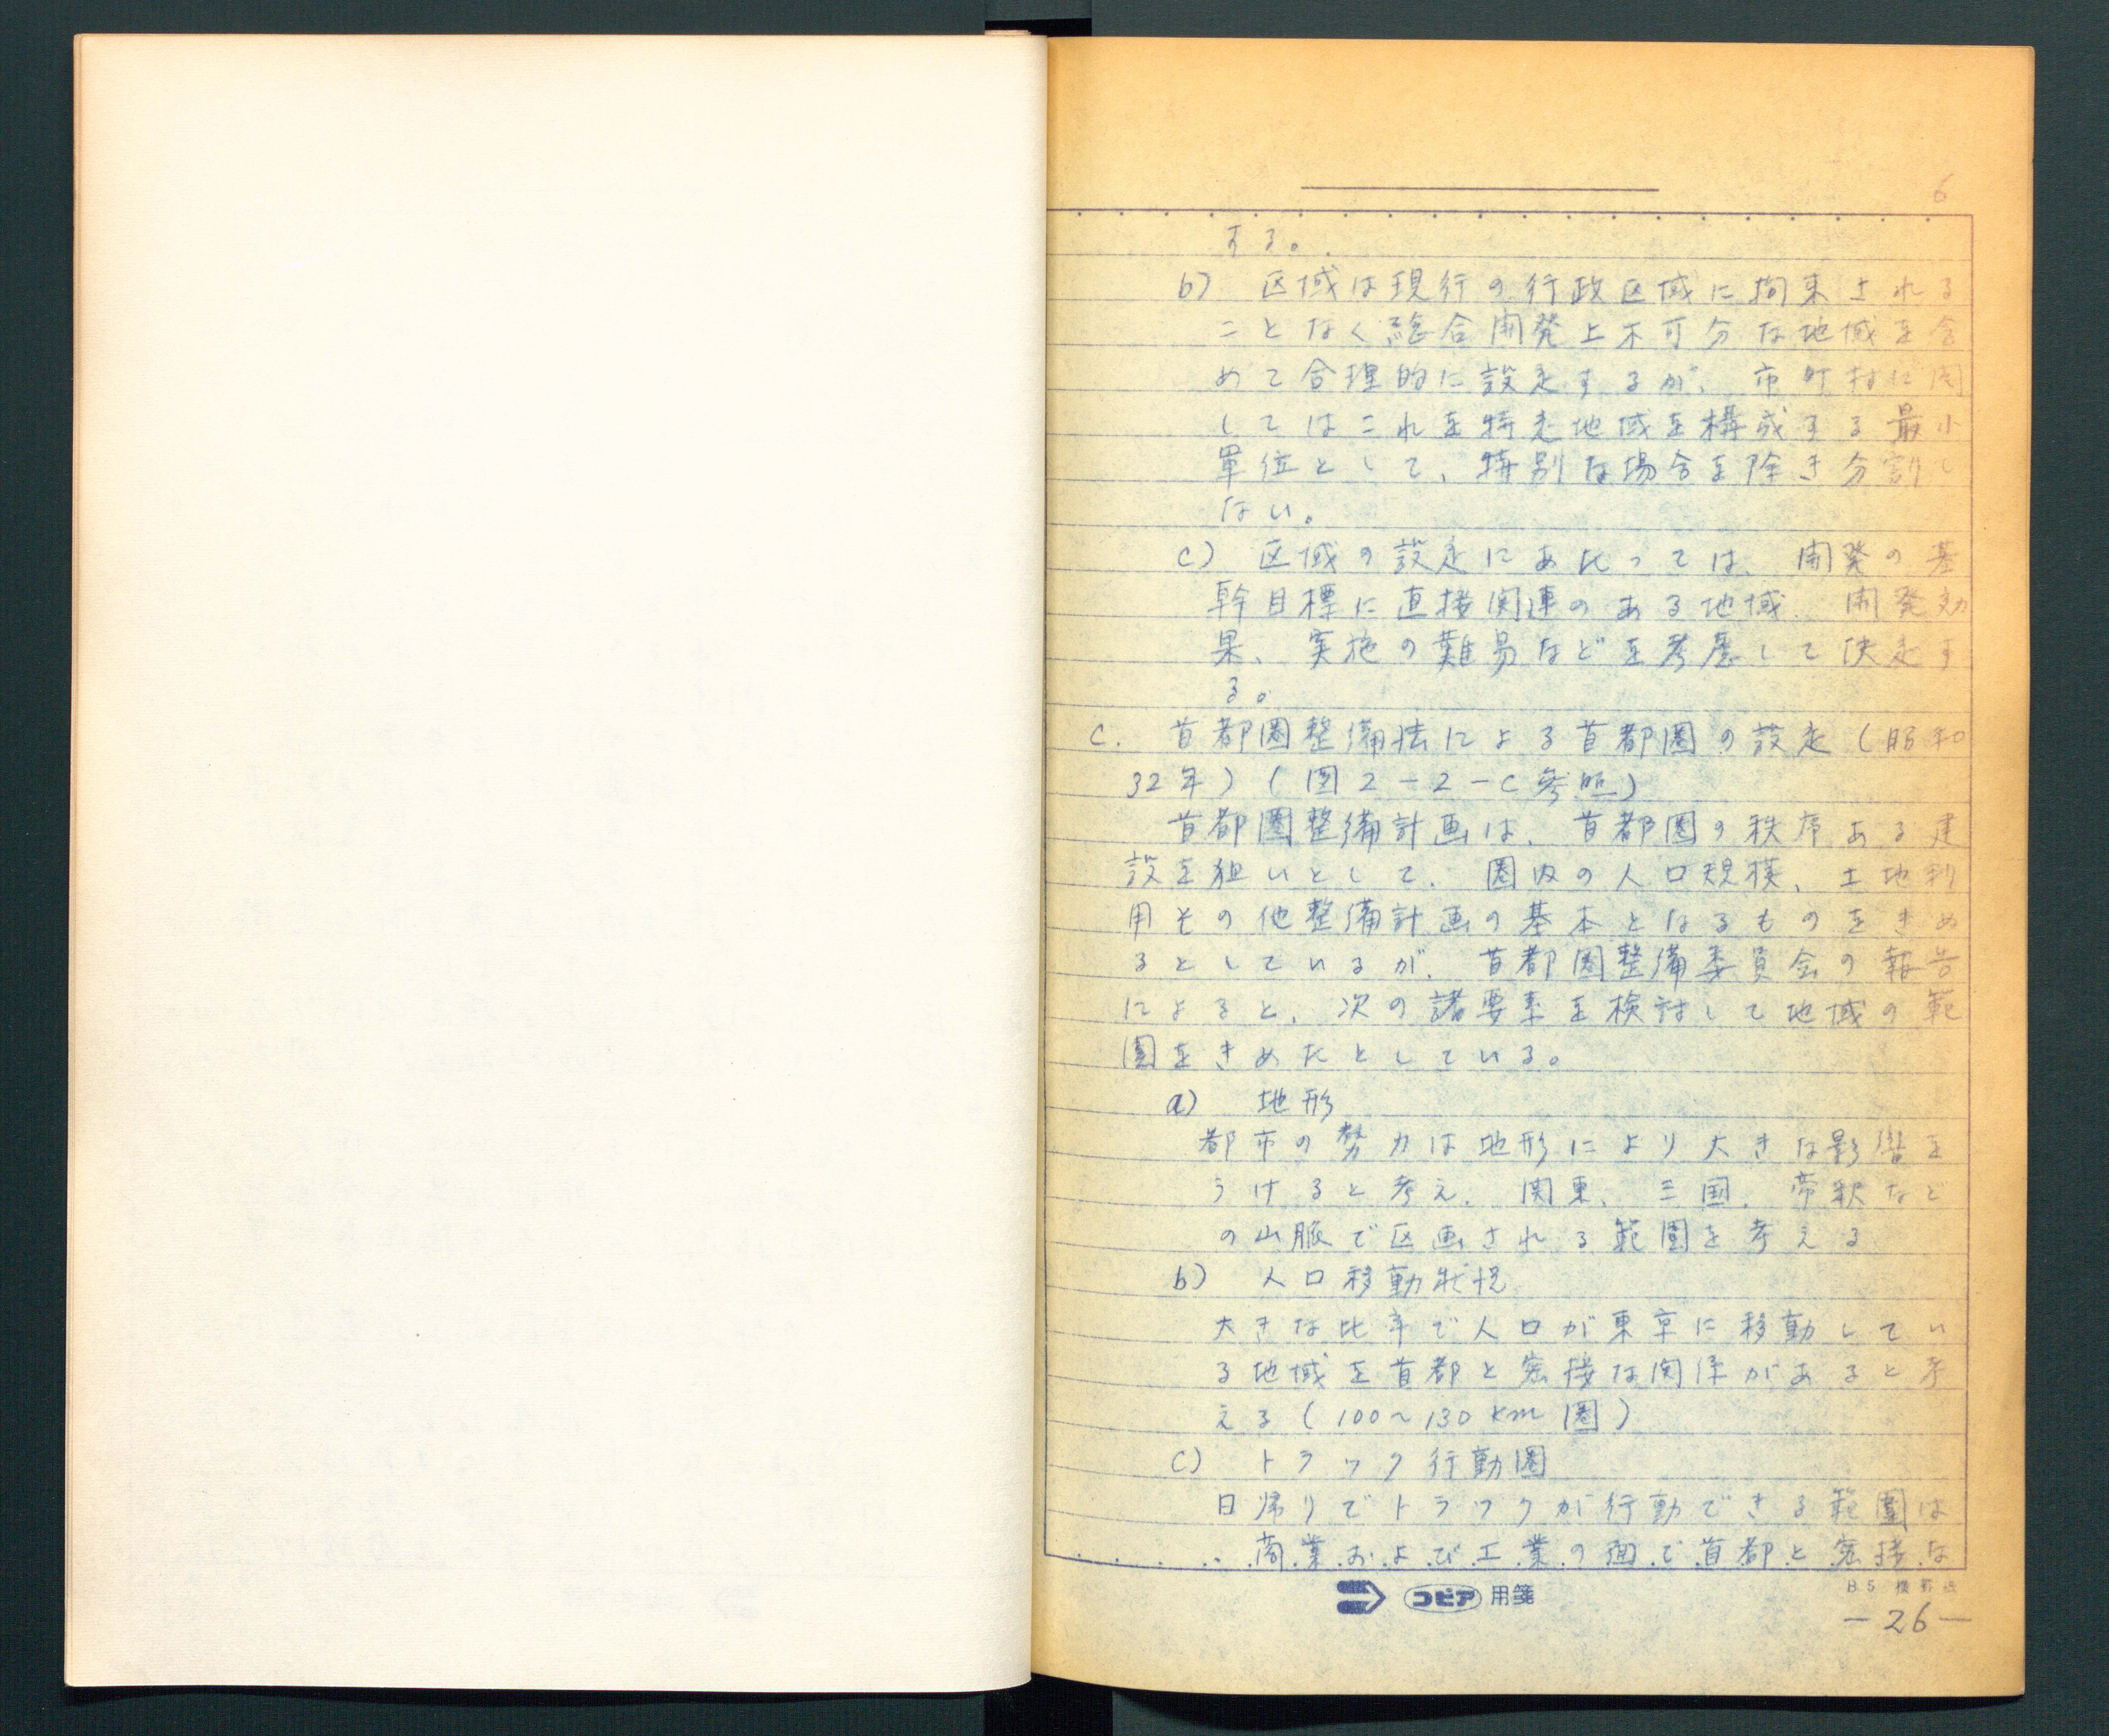 6
する。
b) 区域は現行の行政区域に拘束される
ことなく総合開発上不可分な地域を含
めて合理的に設定するが、市町村に関
してはこれを特定地域を構成する最小
単位として、特別な場合を除き分割し
ない。
c) 区域の設定にあたっては、開発の基
幹目標に直接関連のある地域、開発効
果、実施の難易などを考慮して決定す
る。
C. 首都圏整備法による首都圏の設定(昭和
32年)(図2-2-C参照)
首都圏整備計画は、首都圏の秩序ある建
設を狙いとして、圏内の人口規模、土地利
用その他整備計画の基本となるものをきめ
るとしているが、首都圏整備委員会の報告
によると、次の諸要素を検討して地域の範
囲をきめたとしている。
a) 地形
都市の勢力は地形により大きな影響を
うけると考え、関東、三国、帝釈など
の山脈で区画される範囲を考える
b) 人口移動状況
大きな比率で人口が東京に移動してい
る地域を首都と密接な関係があると考
える(100~130km圏)
c) トラック行動圏
日帰りでトラックが行動できる範囲は
商業および工業の面で首都と密接な
コピア用箋
B5 横罫
-26-